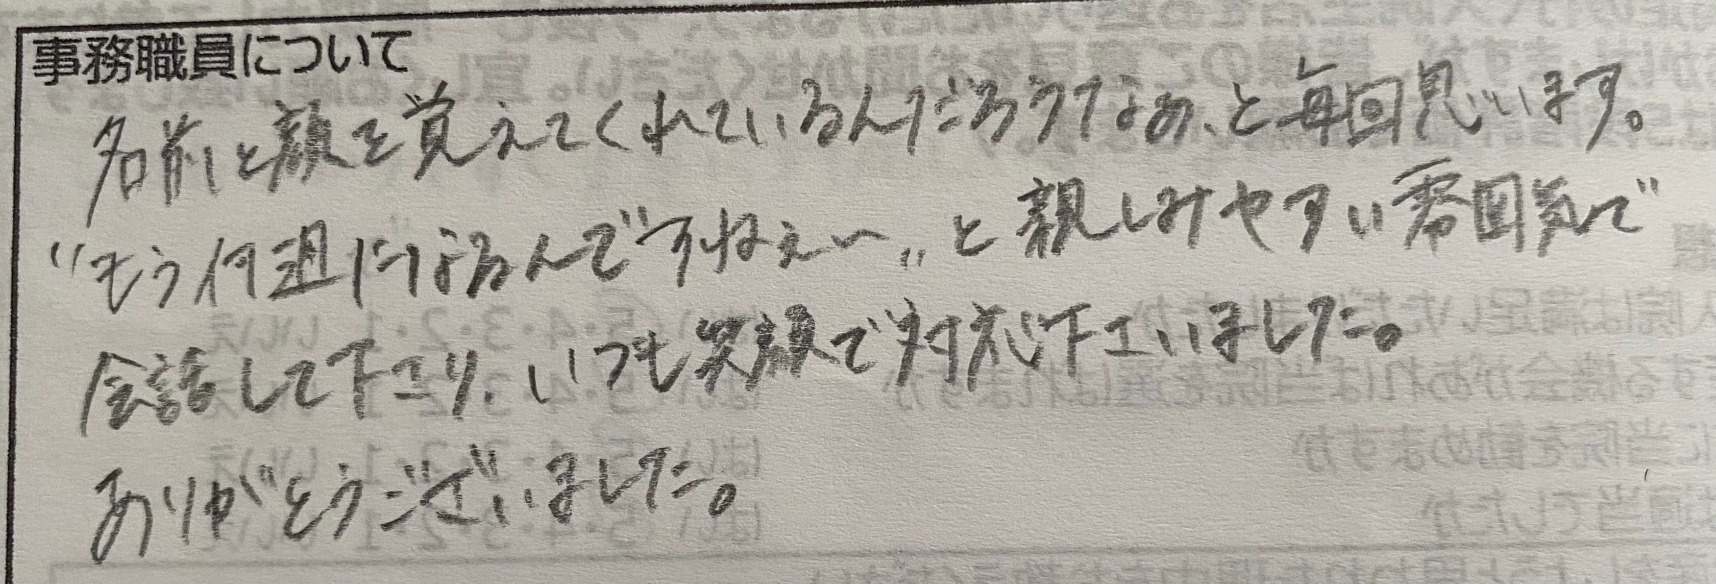 事務職員について
名前と顔を覚えてくれているんだろうなあ、と毎回思います。
“もう何週になるんですねぇ〜„と親しみやすい雰囲気で
会話して下さり、いつも笑顔で対応下さいました。
ありがとうございました。